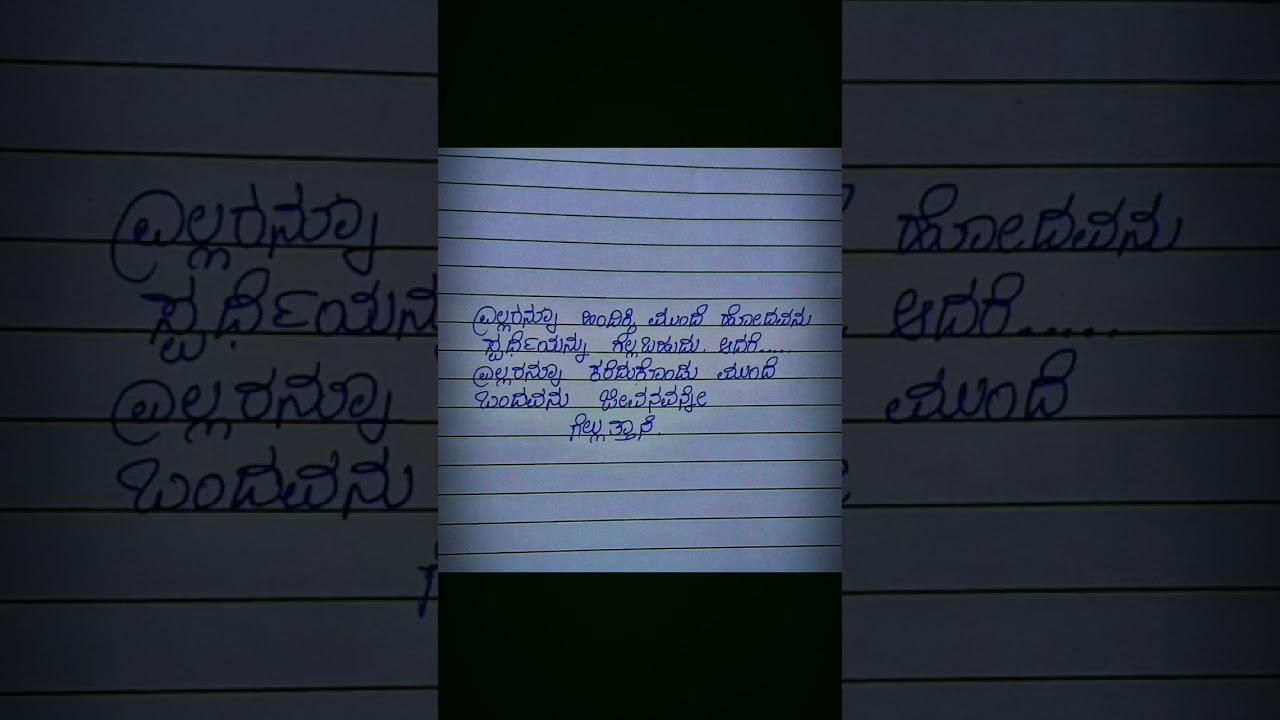 ಎಲ್ಲರನ್ನೂ ಹಿಂದಿಕ್ಕಿ ಮುಂದೆ ಹೋದವನು
ಸ್ಪರ್ಧೆಯನ್ನು ಗೆಲ್ಲಬಹುದು. ಆದರೆ.....
ಎಲ್ಲರನ್ನೂ ಕರೆದುಕೊಂಡು ಮುಂದೆ
ಬಂದವನು ಜೀವನವನ್ನೇ
ಗೆಲ್ಲುತ್ತಾನೆ.